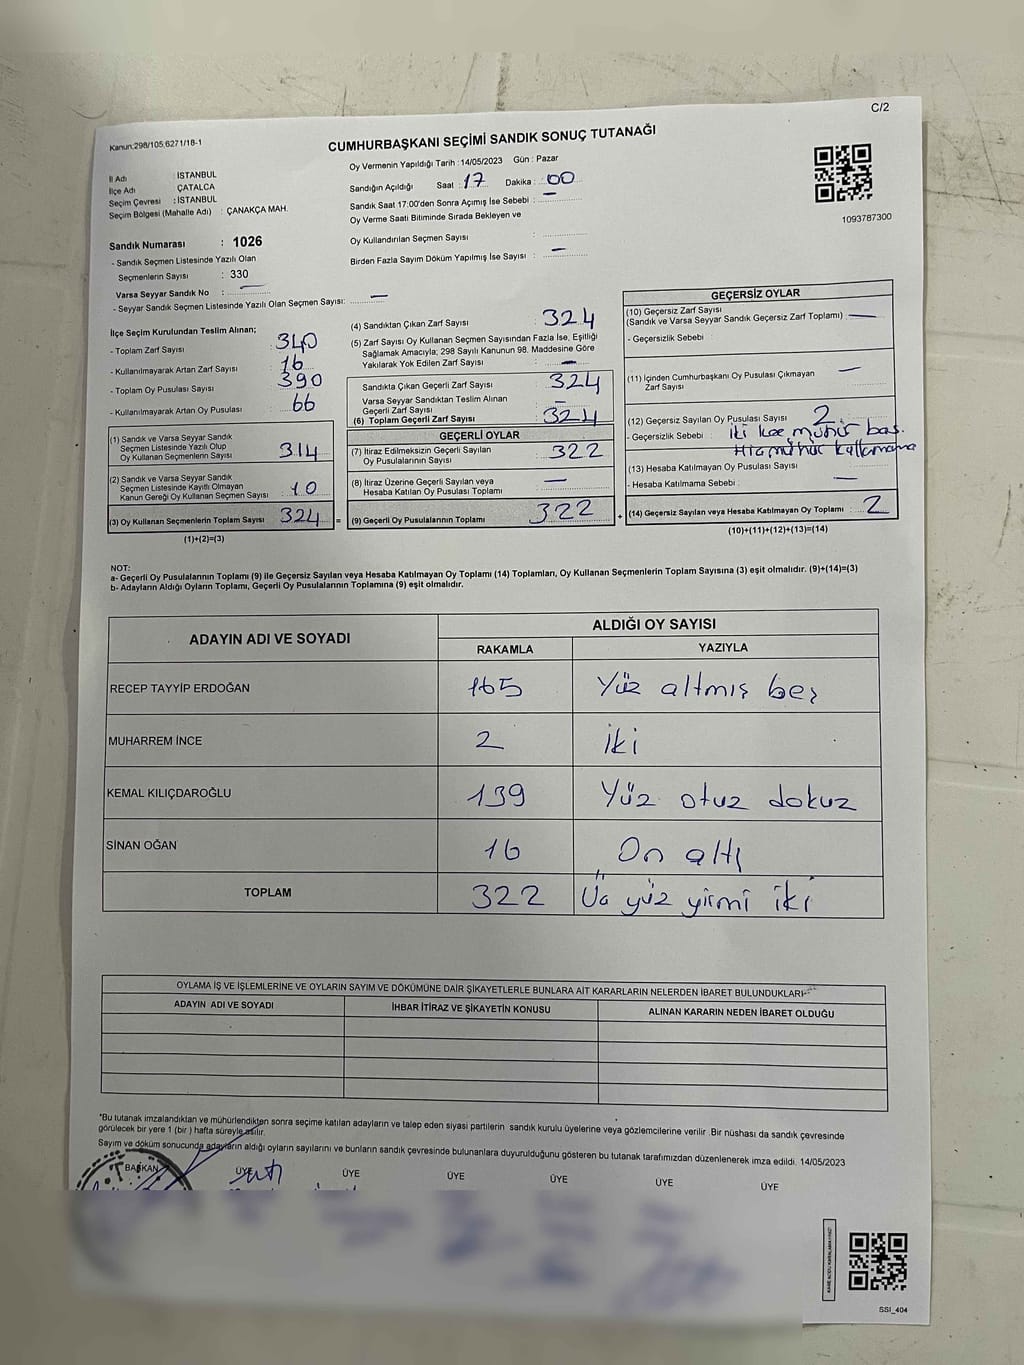 C/2
Kanun:298/105;6271/18-1
CUMHURBAŞKANI SEÇİMİ SANDIK SONUÇ TUTANAĞI
İl Adı : İSTANBUL
İlçe Adı ÇATALCA
Seçim Çevresi : İSTANBUL
Seçim Bölgesi (Mahalle Adı) : ÇANAKÇA MAH.
Oy Vermenin Yapıldığı Tarih : 14/05/2023 Gün : Pazar
Sandığın Açıldığı Saat : 17 Dakika : 00
Sandık Saat 17:00'den Sonra Açımış İse Sebebi : —
Oy Verme Saati Bitiminde Sırada Bekleyen ve
Oy Kullandırılan Seçmen Sayısı :
Birden Fazla Sayım Döküm Yapılmış İse Sayısı : —
1093787300
Sandık Numarası : 1026
- Sandık Seçmen Listesinde Yazılı Olan
Seçmenlerin Sayısı : 330
Varsa Seyyar Sandık No : —
- Seyyar Sandık Seçmen Listesinde Yazılı Olan Seçmen Sayısı: —
İlçe Seçim Kurulundan Teslim Alınan;
- Toplam Zarf Sayısı : 340
- Kullanılmayarak Artan Zarf Sayısı : 16
- Toplam Oy Pusulası Sayısı : 390
- Kullanılmayarak Artan Oy Pusulası : 66
(1) Sandık ve Varsa Seyyar Sandık
Seçmen Listesinde Yazılı Olup
Oy Kullanan Seçmenlerin Sayısı : 314
(2) Sandık ve Varsa Seyyar Sandık
Seçmen Listesinde Kayıtlı Olmayan
Kanun Gereği Oy Kullanan Seçmen Sayısı : 10
(3) Oy Kullanan Seçmenlerin Toplam Sayısı : 324 =
(1)+(2)=(3)
(4) Sandıktan Çıkan Zarf Sayısı : 324
(5) Zarf Sayısı Oy Kullanan Seçmen Sayısından Fazla İse, Eşitliği
Sağlamak Amacıyla; 298 Sayılı Kanunun 98. Maddesine Göre
Yakılarak Yok Edilen Zarf Sayısı : —
Sandıkta Çıkan Geçerli Zarf Sayısı : 324
Varsa Seyyar Sandıktan Teslim Alınan
Geçerli Zarf Sayısı : —
(6) Toplam Geçerli Zarf Sayısı : 324
GEÇERLİ OYLAR
(7) İtiraz Edilmeksizin Geçerli Sayılan
Oy Pusulalarının Sayısı : 322
(8) İtiraz Üzerine Geçerli Sayılan veya
Hesaba Katılan Oy Pusulası Toplamı : —
(9) Geçerli Oy Pusulalarının Toplamı : 322 +
GEÇERSİZ OYLAR
(10) Geçersiz Zarf Sayısı
(Sandık ve Varsa Seyyar Sandık Geçersiz Zarf Toplamı) : —
- Geçersizlik Sebebi :
(11) İçinden Cumhurbaşkanı Oy Pusulası Çıkmayan
Zarf Sayısı : —
(12) Geçersiz Sayılan Oy Pusulası Sayısı : 2
- Geçersizlik Sebebi : iki kez mühür bas.
Hiç mühür kullanmama
(13) Hesaba Katılmayan Oy Pusulası Sayısı : —
- Hesaba Katılmama Sebebi :
(14) Geçersiz Sayılan veya Hesaba Katılmayan Oy Toplamı : 2
(10)+(11)+(12)+(13)=(14)
NOT:
a- Geçerli Oy Pusulalarının Toplamı (9) ile Geçersiz Sayılan veya Hesaba Katılmayan Oy Toplamı (14) Toplamları, Oy Kullanan Seçmenlerin Toplam Sayısına (3) eşit olmalıdır. (9)+(14)=(3)
b- Adayların Aldığı Oyların Toplamı, Geçerli Oy Pusulalarının Toplamına (9) eşit olmalıdır.
ADAYIN ADI VE SOYADI ALDIĞI OY SAYISI
RAKAMLA YAZIYLA
RECEP TAYYİP ERDOĞAN 165 Yüz altmış beş
MUHARREM İNCE 2 iki
KEMAL KILIÇDAROĞLU 139 Yüz otuz dokuz
SİNAN OĞAN 16 On altı
TOPLAM 322 Üç yüz yirmi iki
OYLAMA İŞ VE İŞLEMLERİNE VE OYLARIN SAYIM VE DÖKÜMÜNE DAİR ŞİKAYETLERLE BUNLARA AİT KARARLARIN NELERDEN İBARET BULUNDUKLARI
ADAYIN ADI VE SOYADI İHBAR İTİRAZ VE ŞİKAYETİN KONUSU ALINAN KARARIN NEDEN İBARET OLDUĞU
*Bu tutanak imzalandıktan ve mühürlendikten sonra seçime katılan adayların ve talep eden siyasi partilerin sandık kurulu üyelerine veya gözlemcilerine verilir. Bir nüshası da sandık çevresinde
görülecek bir yere 1 (bir) hafta süreyle asılır.
Sayım ve döküm sonucunda adayların aldığı oyların sayılarını ve bunların sandık çevresinde bulunanlara duyurulduğunu gösteren bu tutanak tarafımızdan düzenlenerek imza edildi. 14/05/2023
BAŞKAN ÜYE ÜYE ÜYE ÜYE ÜYE ÜYE
SSI_404